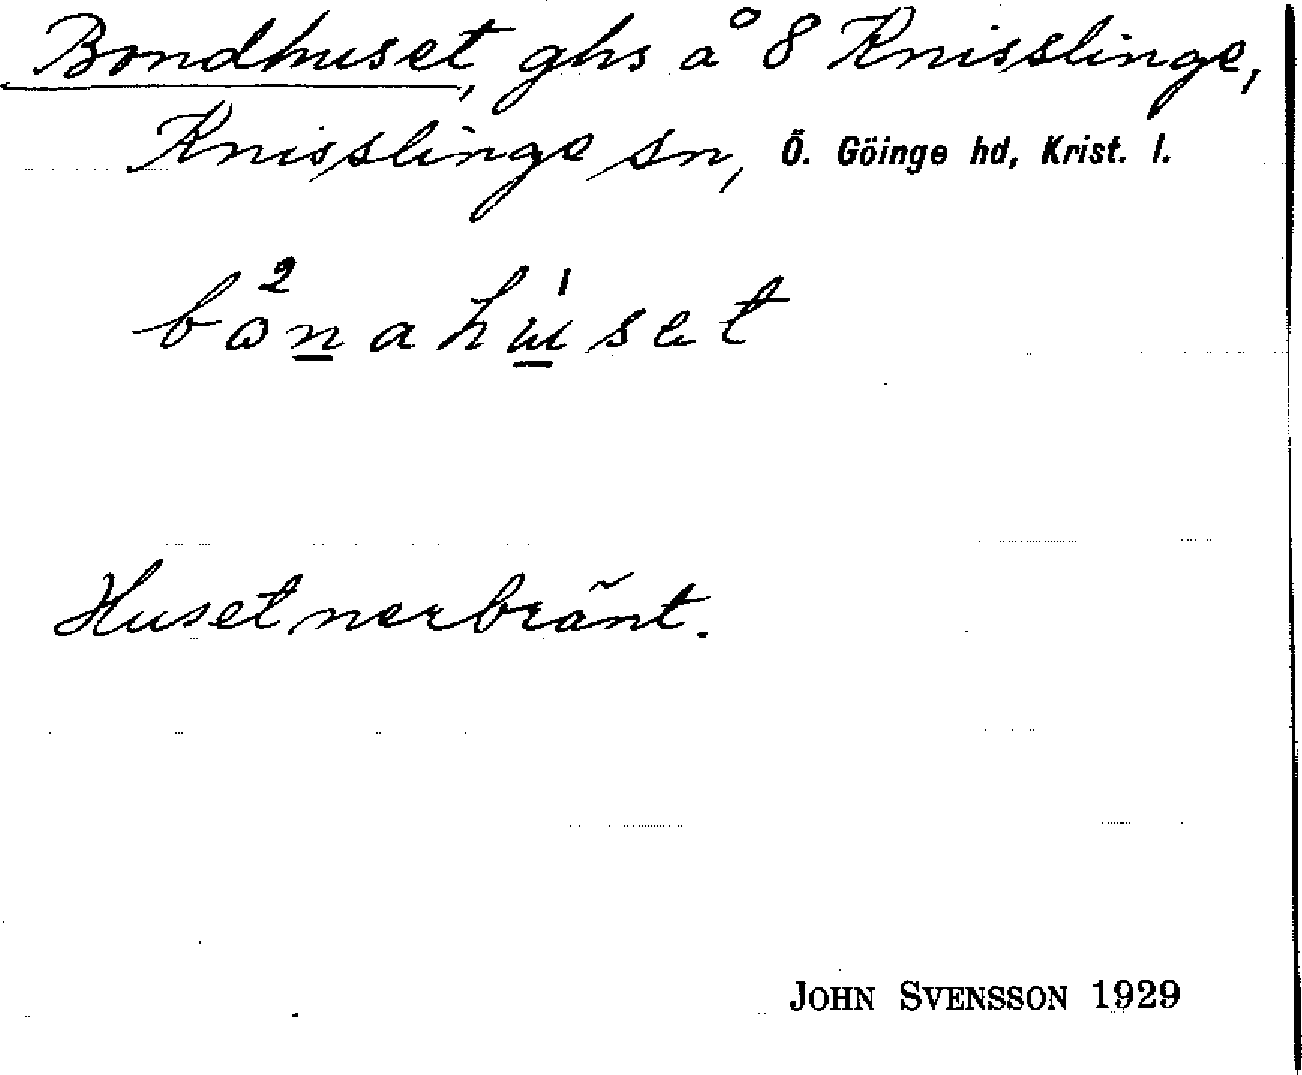 Bondhuset, ghs å 8 Knisslinge,
Knisslinge sn, Ö. Göinge hd, Krist. l.
Huset nerbränt.
JOHN SVENSSON 1929